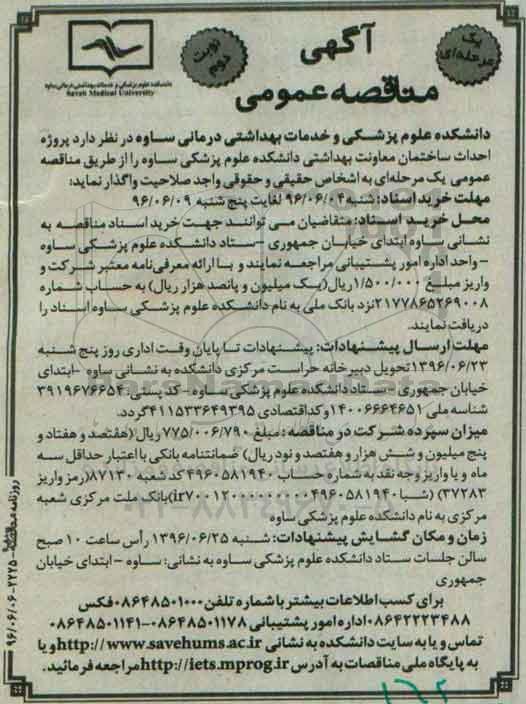 آگهی
مناقصه عمومی
یک مرحله‌ای
نوبت دوم
دانشکده علوم پزشکی و خدمات بهداشتی درمانی ساوه
Saveh Medical University
دانشکده علوم پزشکی و خدمات بهداشتی درمانی ساوه در نظر دارد پروژه
احداث ساختمان معاونت بهداشتی دانشکده علوم پزشکی ساوه را از طریق مناقصه
عمومی یک مرحله‌ای به اشخاص حقیقی و حقوقی واجد صلاحیت واگذار نماید:
مهلت خرید اسناد: شنبه ۹۶/۰۶/۰۴ لغایت پنج شنبه ۹۶/۰۶/۰۹
محل خرید اسناد: متقاضیان می توانند جهت خرید اسناد مناقصه به
نشانی ساوه ابتدای خیابان جمهوری –ستاد دانشکده علوم پزشکی ساوه
– واحد اداره امور پشتیبانی مراجعه نمایند و با ارائه معرفی‌نامه معتبر شرکت و
واریز مبلغ ۱/۵۰۰/۰۰۰ ریال(یک میلیون و پانصد هزار ریال) به حساب شماره
۲۱۷۷۸۶۵۲۶۹۰۰۸ نزد بانک ملی به نام دانشکده علوم پزشکی ساوه اسناد را
دریافت نمایند.
مهلت ارسال پیشنهادات: پیشنهادات تا پایان وقت اداری روز پنج شنبه
۱۳۹۶/۰۶/۲۳ تحویل دبیرخانه حراست مرکزی دانشکده به نشانی ساوه –ابتدای
خیابان جمهوری – ستاد دانشکده علوم پزشکی ساوه – کد پستی: ۳۹۱۹۶۷۶۶۵۴
شناسه ملی ۱۴۰۰۶۶۶۴۶۵۱ و کد اقتصادی ۴۱۱۵۳۳۶۴۹۳۹۵ گردد.
میزان سپرده شرکت در مناقصه: مبلغ ۷۷۵/۰۰۶/۷۹۰ ریال(هفتصد و هفتاد و
پنج میلیون و شش هزار و هفتصد و نود ریال) ضمانتنامه بانکی با اعتبار حداقل سه
ماه و یا واریز وجه نقد به شماره حساب ۴۹۶۰۵۸۱۹۴۰ کد شعبه ۸۷۱۳۰(رمز واریز
۳۷۲۸۳) (شبا ir۷۰۰۱۲۰۰۰۰۰۰۰۰۰۰۴۹۶۰۵۸۱۹۴۰)بانک ملت مرکزی شعبه
مرکزی به نام دانشکده علوم پزشکی ساوه
زمان و مکان گشایش پیشنهادات: شنبه ۱۳۹۶/۰۶/۲۵ رأس ساعت ۱۰ صبح
سالن جلسات ستاد دانشکده علوم پزشکی ساوه به نشانی: ساوه – ابتدای خیابان
جمهوری
برای کسب اطلاعات بیشتر با شماره تلفن ۰۸۶۴۸۵۰۱۰۰۰ فکس
۰۸۶۴۲۲۲۳۴۸۸ اداره امور پشتیبانی ۰۸۶۴۸۵۰۱۱۷۸-۰۸۶۴۸۵۰۱۱۴۱
تماس و یا به سایت دانشکده به نشانی http://www.savehums.ac.ir و یا
به پایگاه ملی مناقصات به آدرس http://iets.mprog.ir مراجعه فرمائید.
۹۶/۰۶/۰۶-۲۲۲۵
۱۶۲